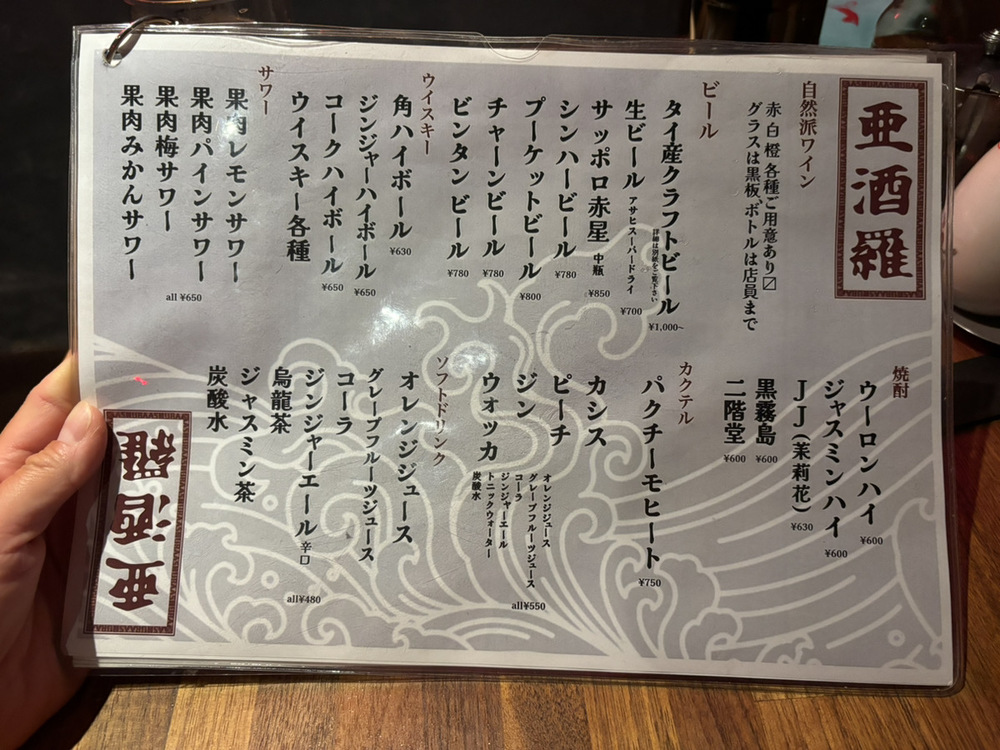 亜酒羅
自然派ワイン
赤 白 橙 各種ご用意あり〼
グラスは黒板、ボトルは店員まで
ビール
タイ産クラフトビール 詳細は別紙をご覧下さい ¥1,000~
生ビール アサヒスーパードライ ¥700
サッポロ赤星 中瓶 ¥850
シンハービール ¥780
プーケットビール ¥800
チャーンビール ¥780
ビンタンビール ¥780
ウイスキー
角ハイボール ¥630
ジンジャーハイボール ¥650
コークハイボール ¥650
ウイスキー各種
サワー
果肉レモンサワー
果肉パインサワー
果肉梅サワー
果肉みかんサワー
all ¥650
焼酎
ウーロンハイ ¥600
ジャスミンハイ ¥600
JJ(茉莉花) ¥630
黒霧島 ¥600
二階堂 ¥600
カクテル
パクチーモヒート ¥750
カシス
ピーチ
ジン
ウオッカ
オレンジジュース
グレープフルーツジュース
コーラ
ジンジャーエール
トニックウォーター
炭酸水
all¥550
ソフトドリンク
オレンジジュース
グレープフルーツジュース
コーラ
ジンジャーエール 辛口
烏龍茶
ジャスミン茶
炭酸水
all¥480
亜酒羅